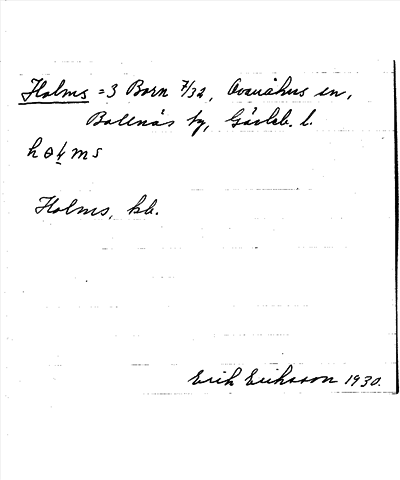 Holms =3 Born 7/32, Ovanåkers sn,
Bollnäs tg, Gävleb. l.
hɵɫms
Holms, kb.
Erik Eriksson 1930.